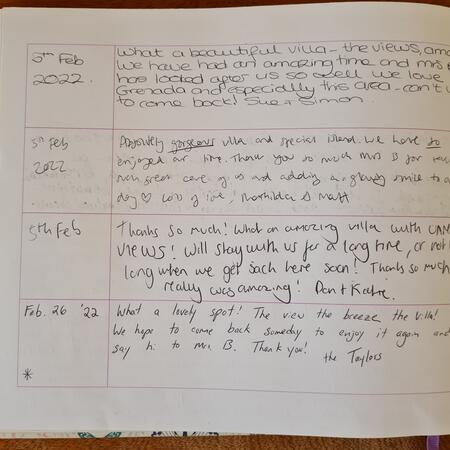 5th Feb
2022.
What a beautiful villa - the views, ama
We have had an amazing time and mrs B
has looked after us so well we love
Grenada and especially this area - can't w
to come back! Sue + Simon.
5th Feb
2022
Absolutely gorgeous villa and special island. We have so
enjoyed our time. Thank you so much Mrs B for
such great care of us and adding a smile to
day ♡ Lots of love, Mathilda & Matt
5th Feb
Thanks so much! What an amazing villa with
VIEWS! Will stay with us for a long time, or not
long when we get back here soon! Thanks so much
really was amazing! Dan + Katie.
Feb. 26 '22
What a lovely spot! The view the breeze the villa!
We hope to come back someday to enjoy it again and
say hi to Mrs. B. Thank you! the Taylors
*